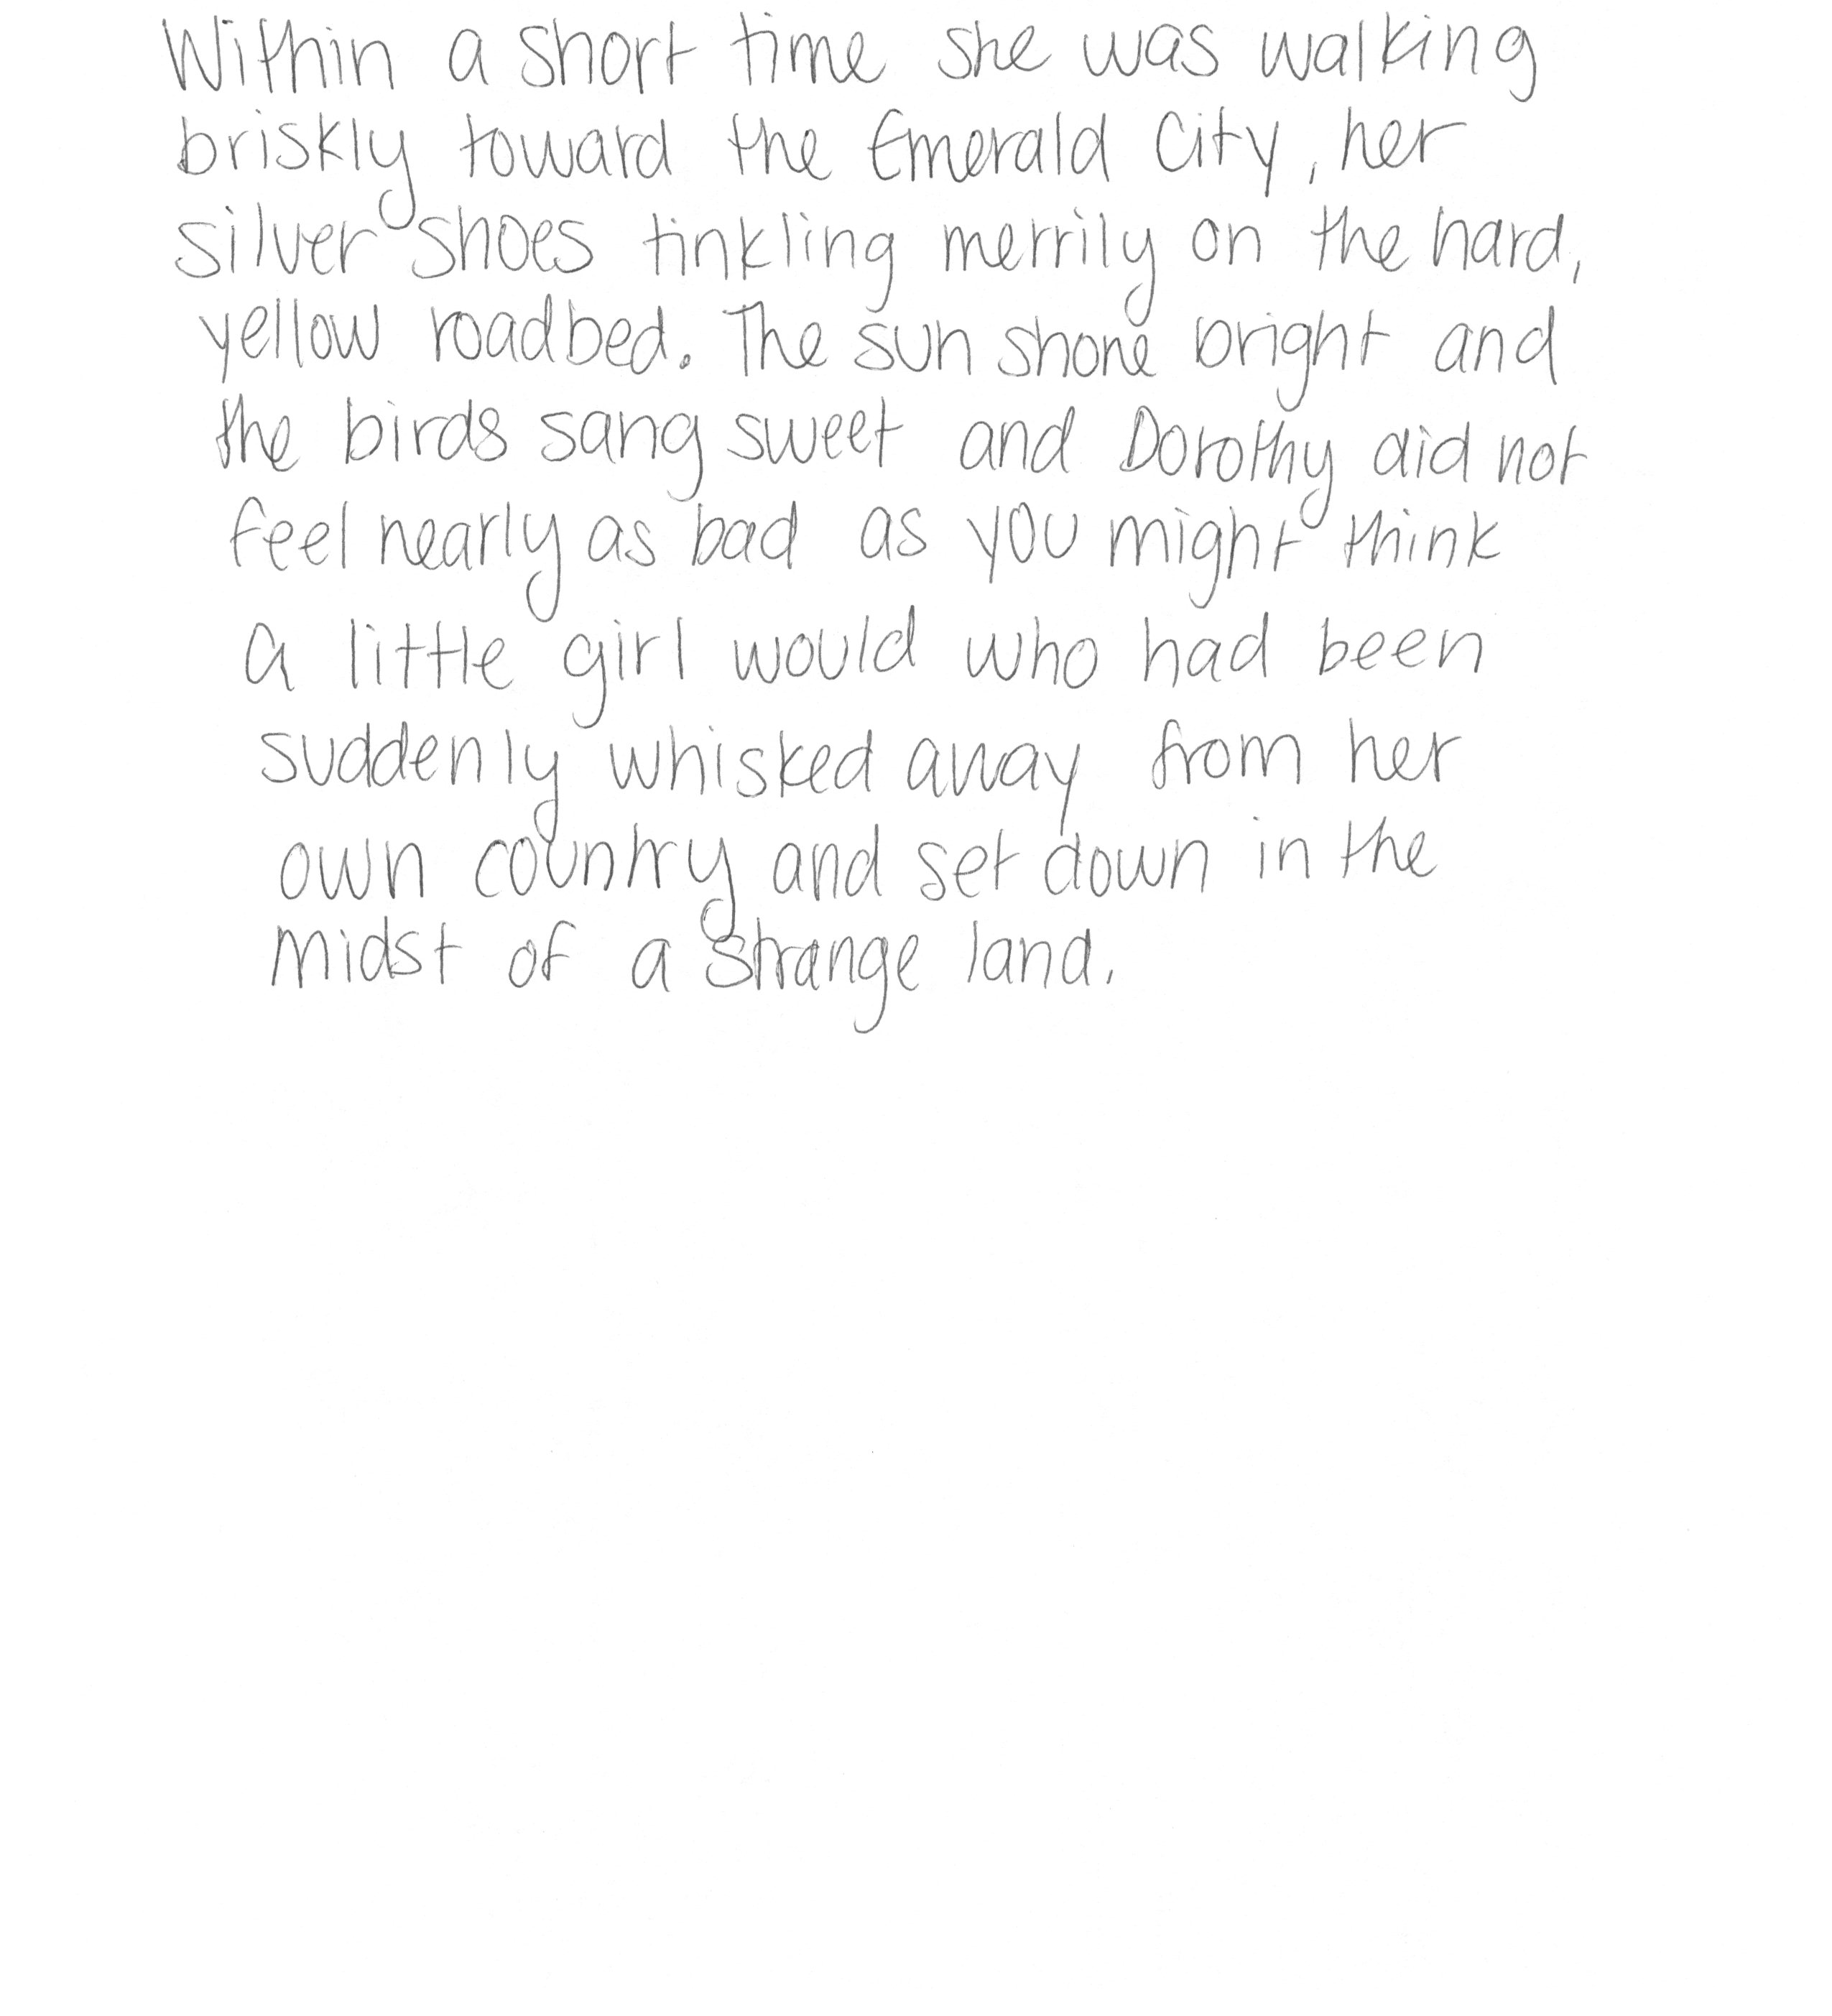 Within a short time she was walking
briskly toward the Emerald City, her
silver shoes tinkling merrily on the hard,
yellow roadbed. The sun shone bright and
the birds sang sweet and Dorothy did not
feel nearly as bad as you might think
a little girl would who had been
suddenly whisked away from her
own country and set down in the
midst of a strange land.